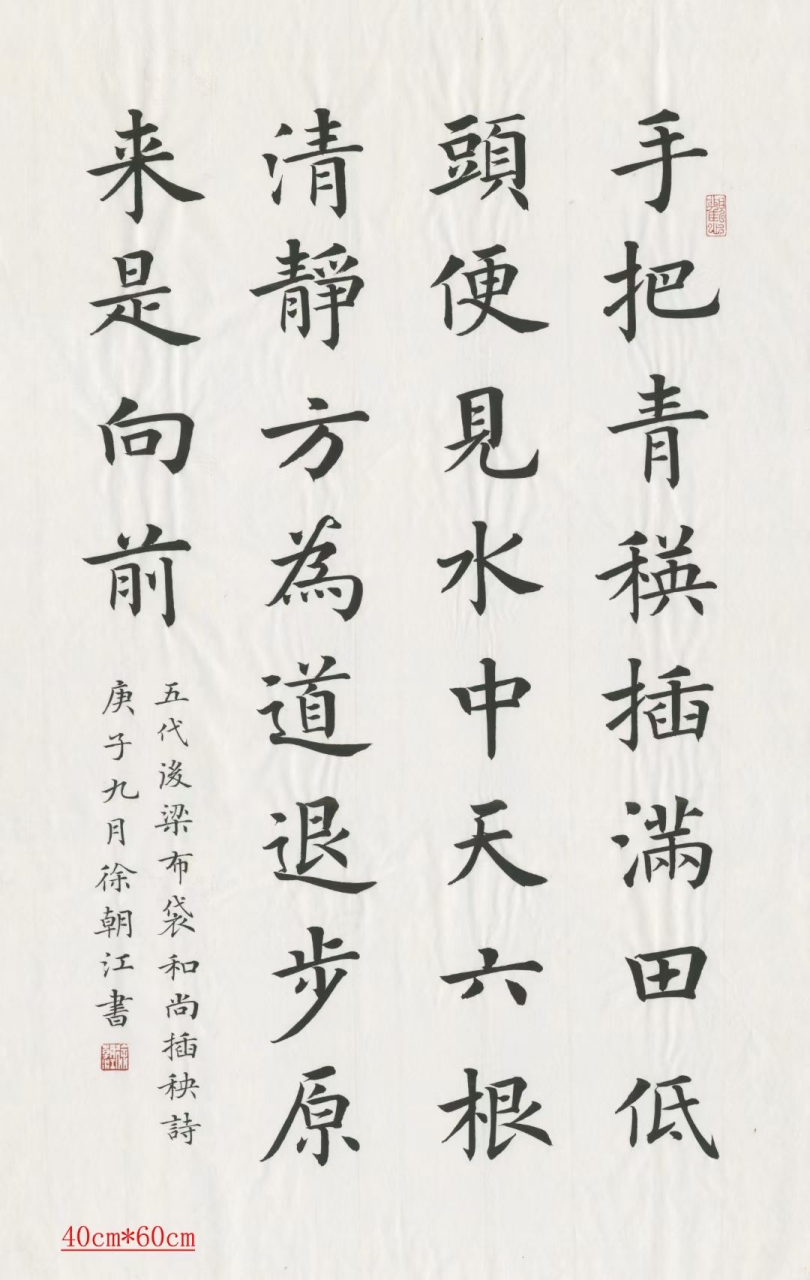 手把青䅘插滿田低
頭便見水中天六根
清靜方為道退步原
来是向前
五代後梁布袋和尚插秧詩
庚子九月徐朝江書
40cm*60cm